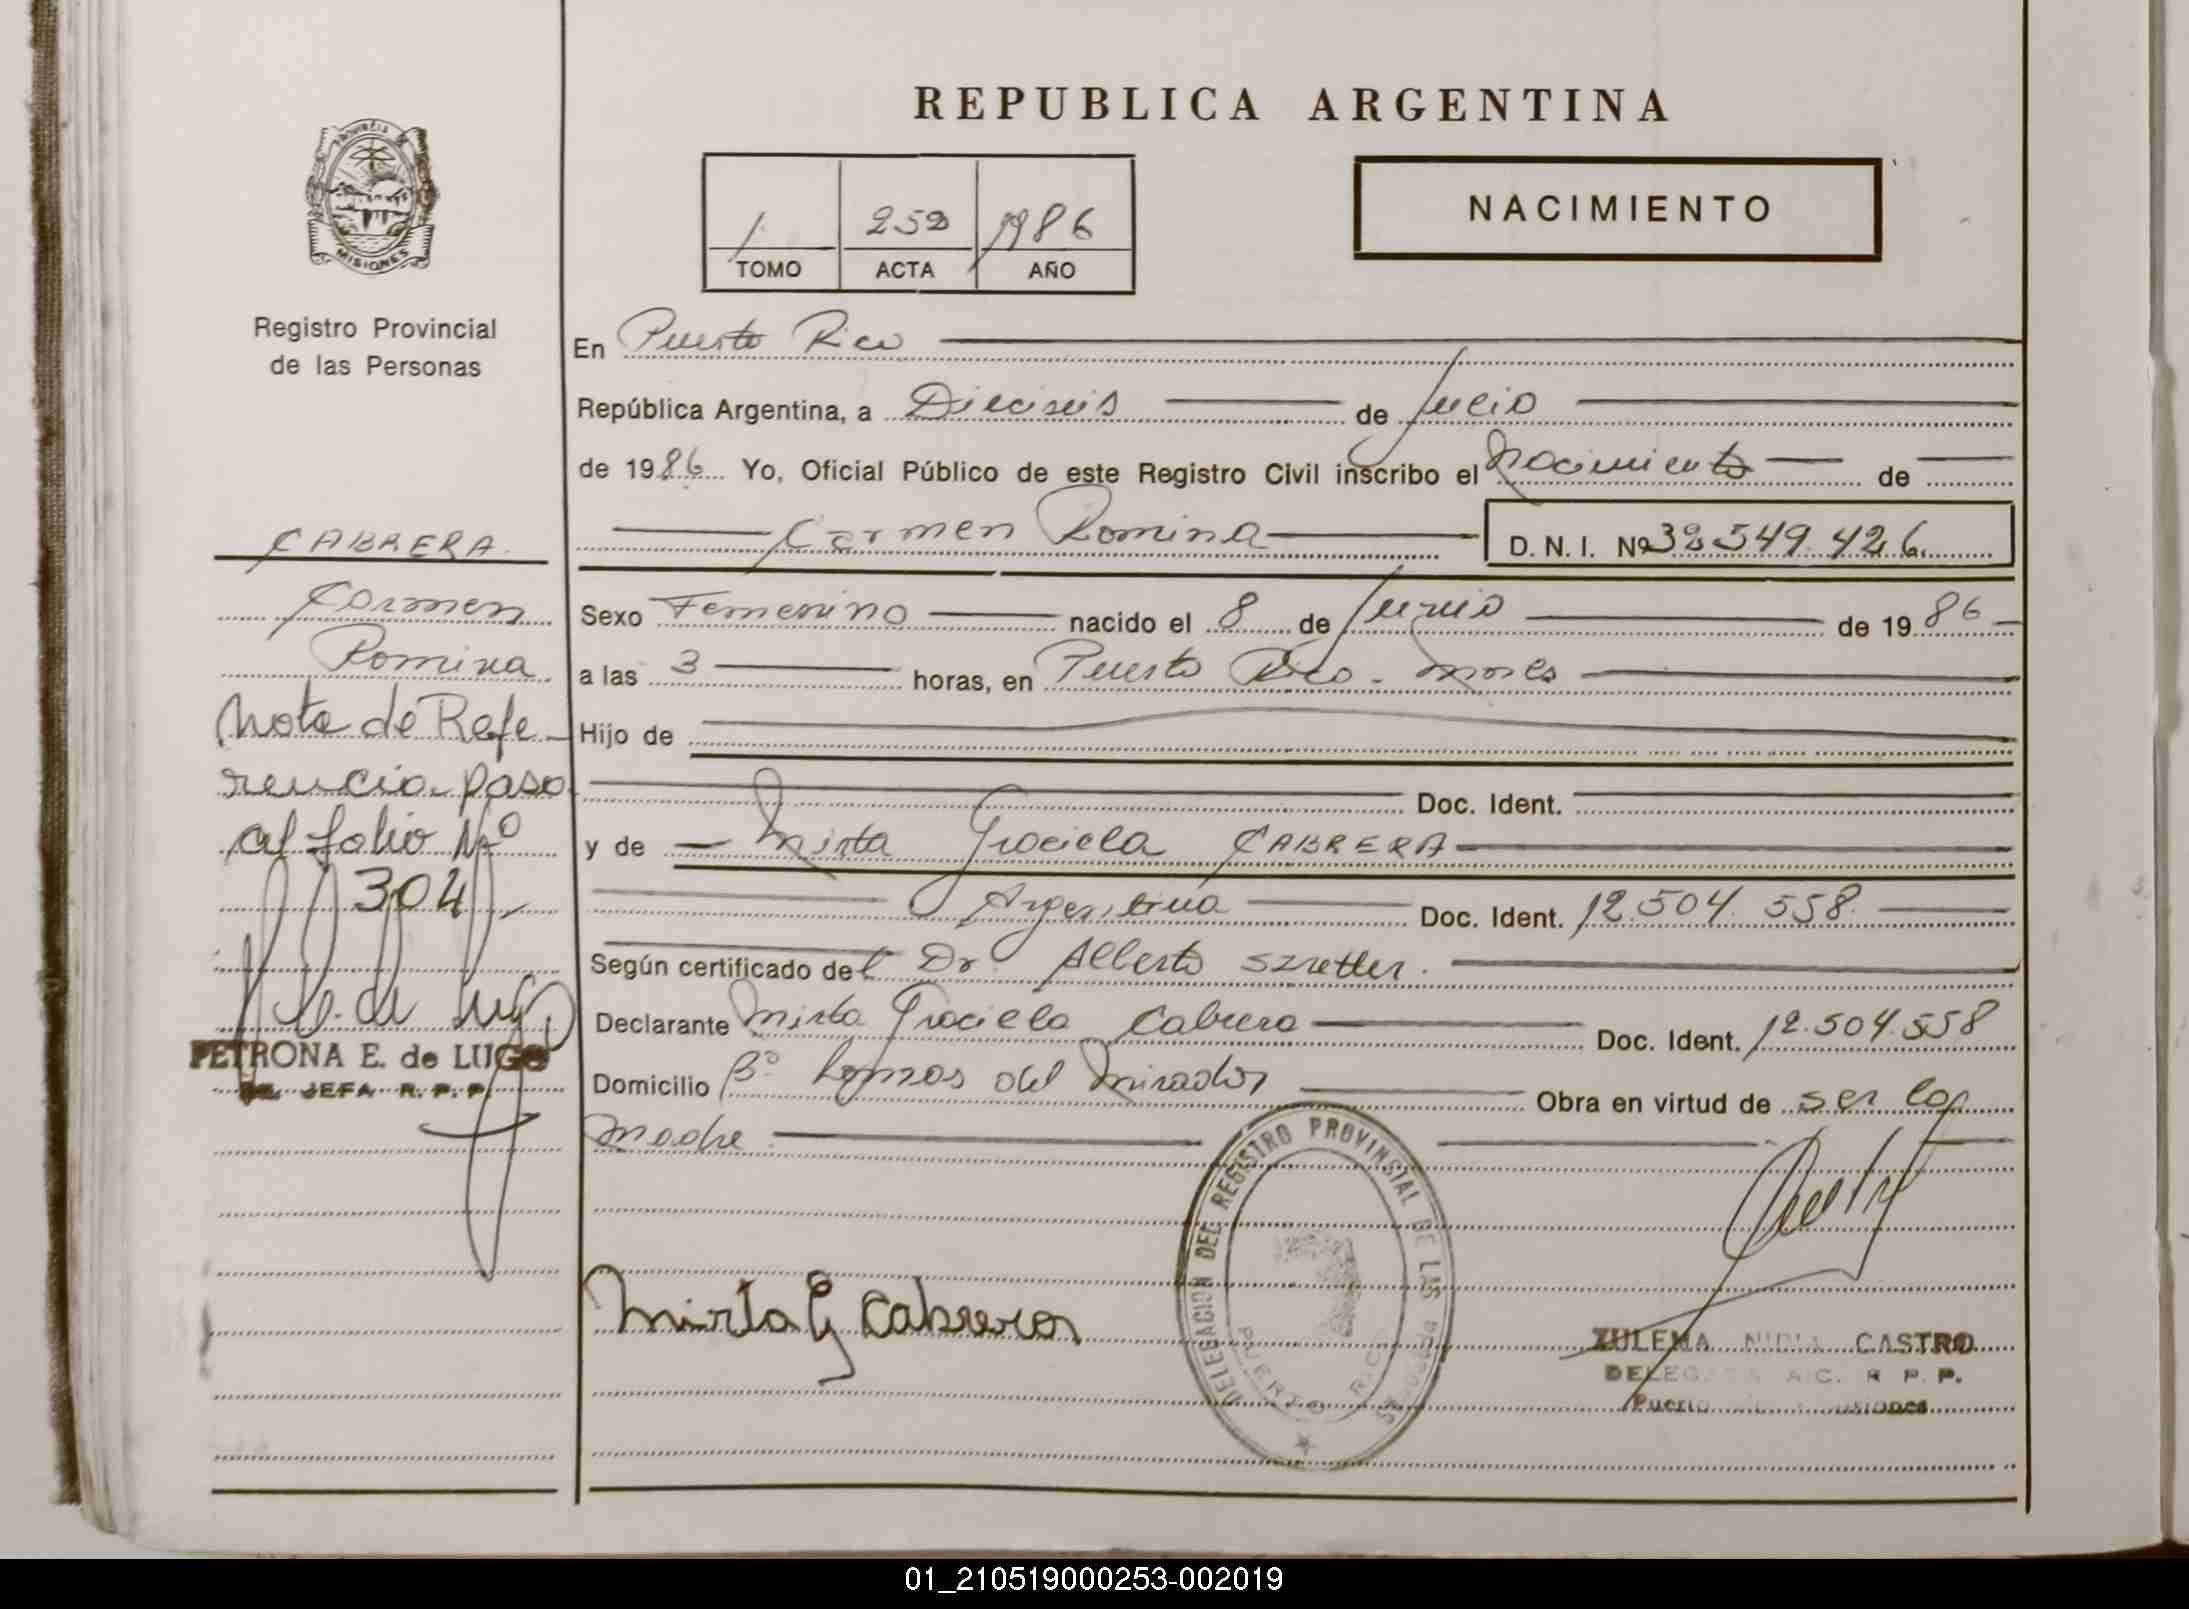 REPUBLICA ARGENTINA
PROVINCIA DE
MISIONES
Registro Provincial
de las Personas
1 252 1986
TOMO ACTA AÑO
NACIMIENTO
En Puerto Rico
República Argentina, a Dieciseis de Julio
de 1986 Yo, Oficial Público de este Registro Civil inscribo el Nacimiento de
Carmen Romina D. N. I. Nº 32.549.426
Sexo Femenino nacido el 8 de Junio de 1986
a las 3 horas, en Puerto Rico - Mnes
Hijo de
Doc. Ident.
y de Mirta Graciela CABRERA
Argentina Doc. Ident. 12.504.558
Según certificado del Dr. Alberto Szretter.
Declarante Mirta Graciela Cabrera Doc. Ident. 12.504.558
Domicilio Bº Lomas del Mirador Obra en virtud de ser la
Madre.
CABRERA
Carmen
Romina
Nota de Refe-
rencia paso
al folio Nº
304
PETRONA E. de LUGO
JEFA R. P. P.
Mirta G Cabrera
DELEGACION DEL REGISTRO PROVINSIAL DE LAS
PUERTO RICO
ZULEMA NIDIA CASTRO
R. P. P.
01_210519000253-002019